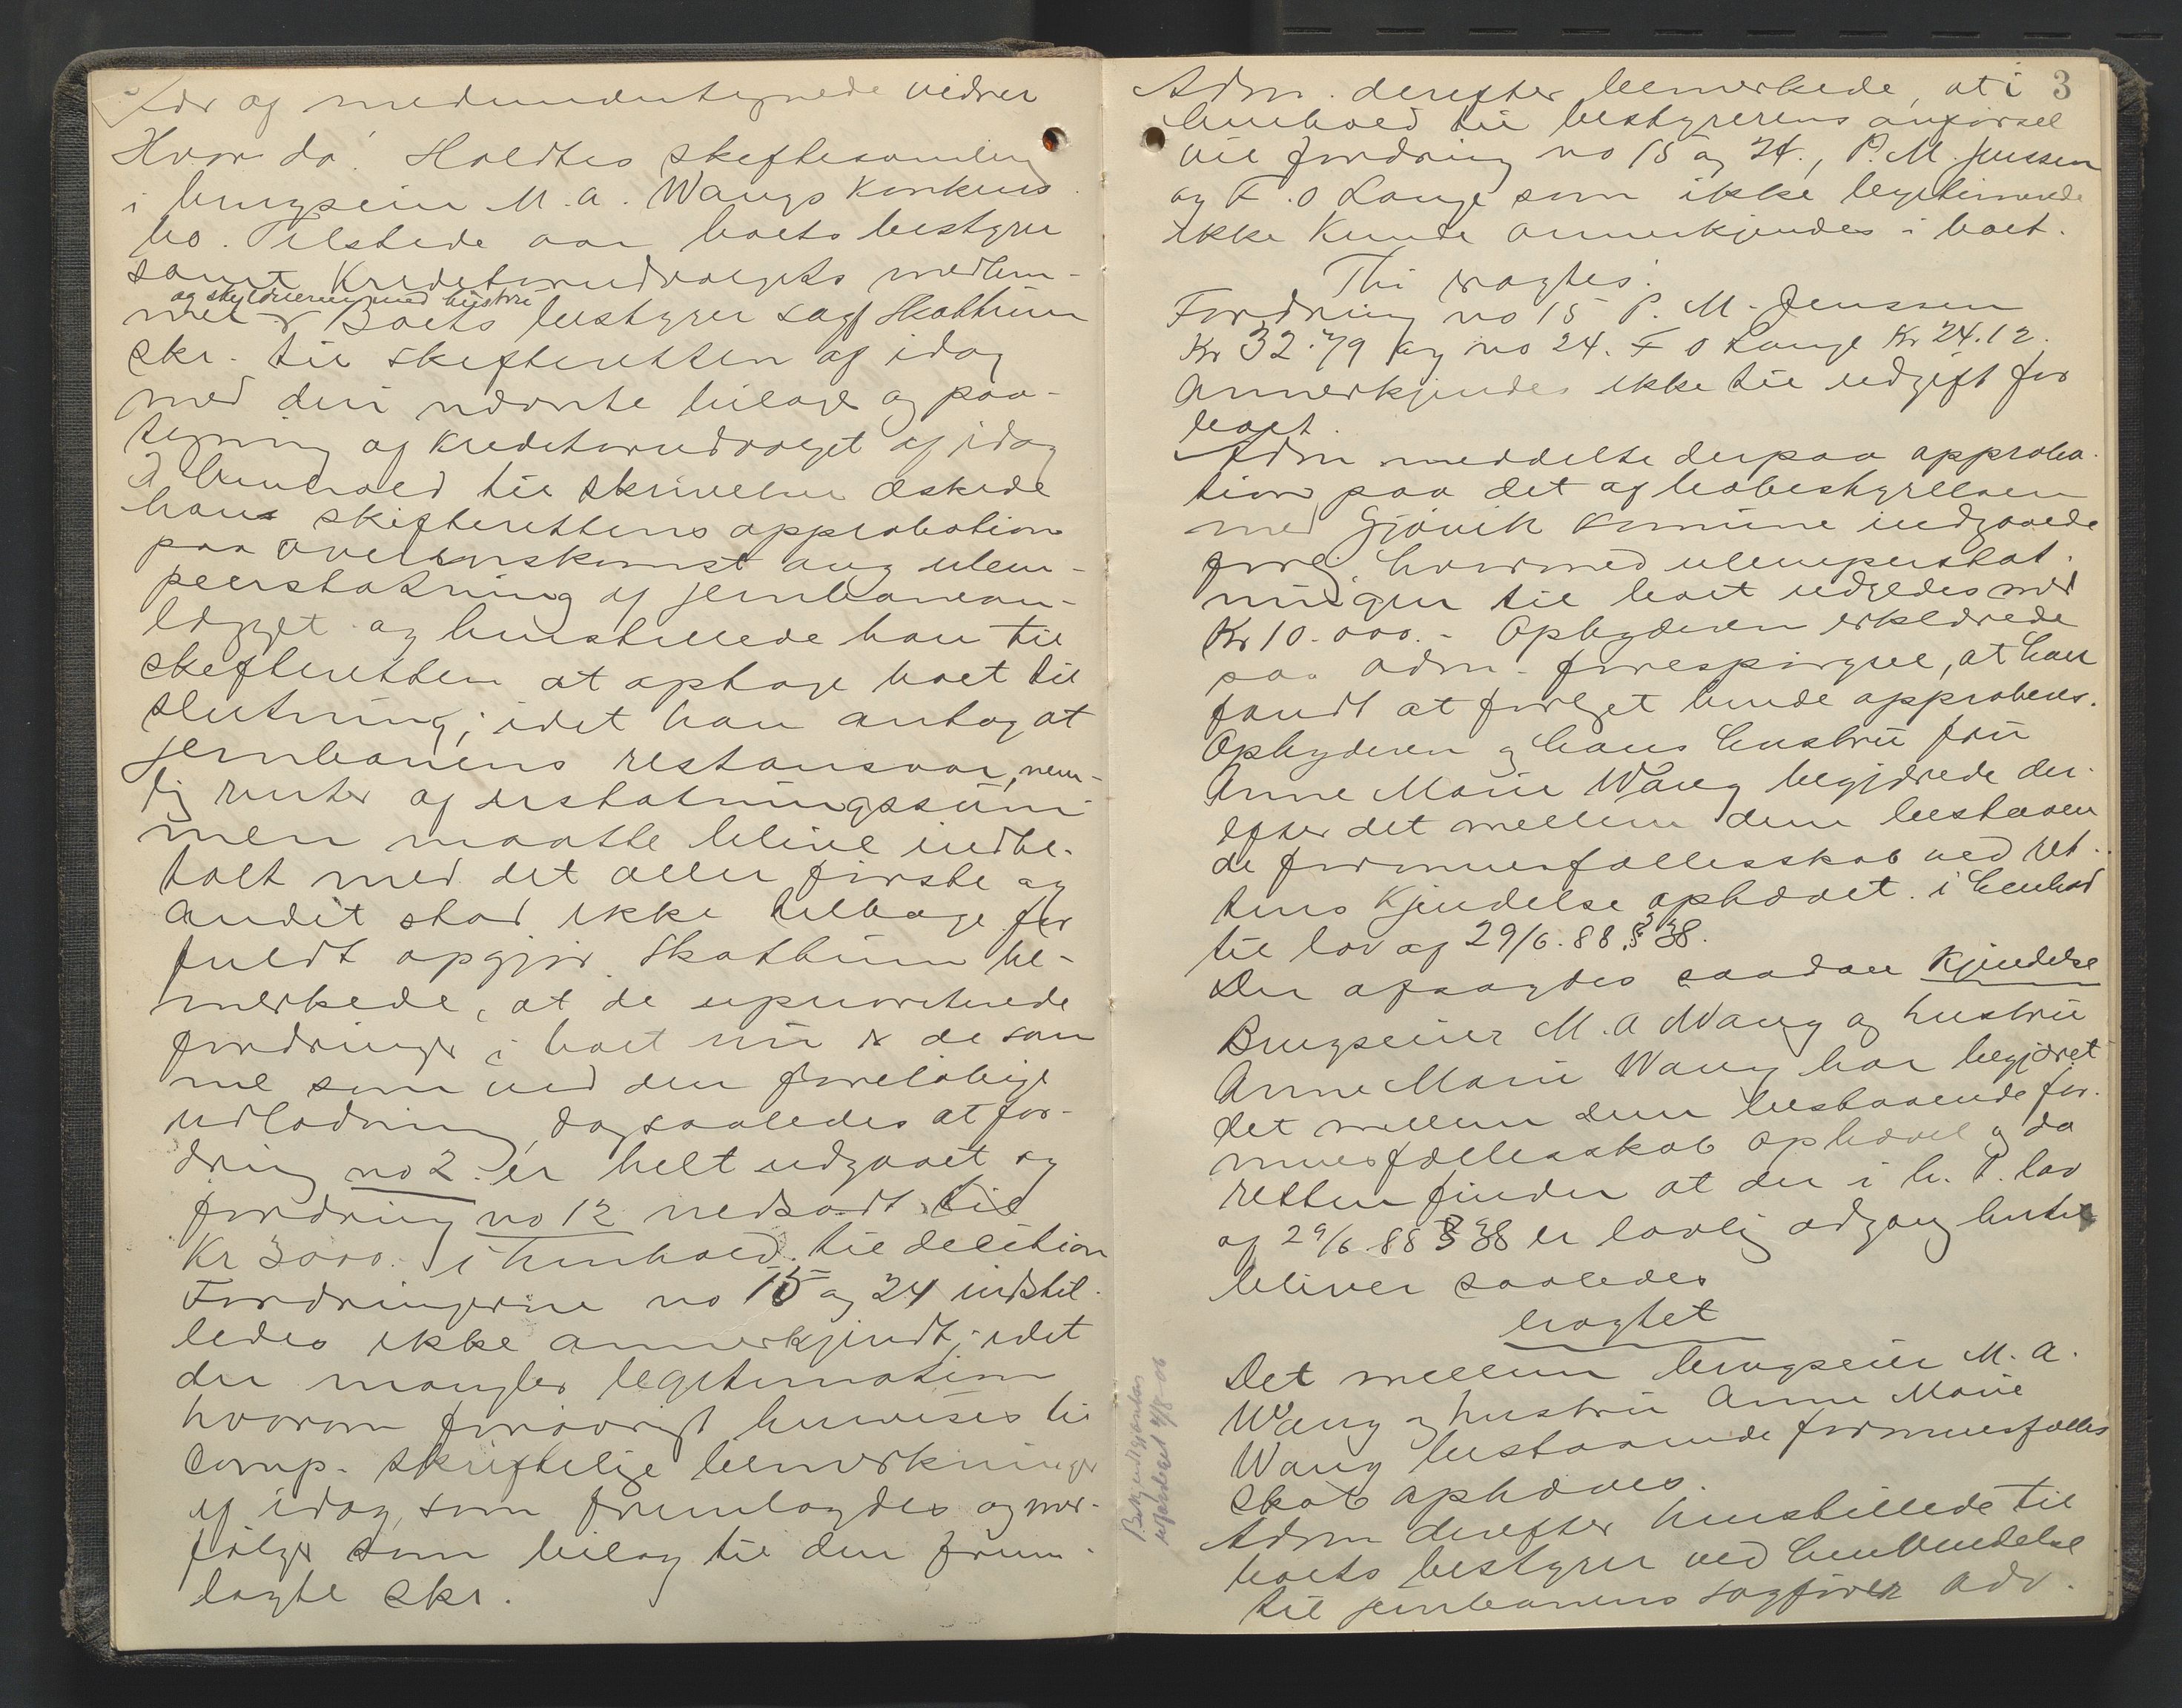 tær og medundertegnede vidner
Hvor da: Holdtes skiftesamling
i brugseier M. A. Wangs konkurs
bo. Tilstede var boets bestyrer
samt Kreditorudvalgets medlem-
og skyldneren med hustru
mer. Boets bestyrer sagf Skattum
skr. til skifteretten af idag
med deri nævnte bilage og paa-
tegning af kreditorudvalget af idag
I henhold til skrivelsen æskede
han skifterettens approbation
paa overenskomst ang ulem-
peerstatning af jernbanean-
lægget og henstillede han til
skifteretten at optage boet til
slutning; idet han antog at
jernbanens restansvar, nem-
lig renter af erstatningssum-
men maatte blive indbe-
talt med det aller første og
andet stod ikke tilbage for
fuldt opgjør. Skattum be-
merkede, at de uprioriterede
fordringer i boet nu er de sam
me som ved den foreløbige
udlodning, dog saaledes at for-
dring no 2 er helt udgaaet og
fordring no 12 nedsadt til
Kr 3000. i henhold til decision
Fordringerne no 15 og 24 indstil-
ledes ikke annerkjendt; idet
der mangler legitimation
hvorom forøvrigt henvises til
Comp. skriftelige bemerkninger
af idag, som fremlagdes og ved-
følger som bilag til den frem-
lagte skr.
3
Adm. derefter bemerkede, at i
henhold til bestyrerens anførsel
vil fordring no 15 og 24., P. M. Jenssen
og F. O Lange som ikke legitimerede
ikke kunde annerkjendes i boet.
Thi eragtes:
Fordring no 15 P. M. Jenssen
Kr 32.79 og no 24. F O Lange Kr 24.12.
Annerkjendes ikke til udgift for
boet.
Adm meddelte derpaa approba-
tion paa det af bobestyrelsen
med Gjøvik komune indgaaede
forlig hvormed ulempeerstat-
ningen til boet udredes med
Kr 10.000.- Opbyderen erklærede
paa adm. forespørgsel, at han
fandt at forliget burde approberes.
Opbyderen og hans hustru fru
Anne Marie Wang begjærede der-
efter det mellem dem bestaaen
de formuesfællesskab ved ret-
tens kjendelse ophævet i henhold
til lov af 29/6.88 § 38.
Der afsagdes saadan Kjendelse
Brugseier M. A Wang og hustru
Anne Marie Wang har begjæret
det mellem dem bestaaende for-
muesfællesskab ophævet og da
retten finder at der i h. t. lov
af 29/6.88 § 38 er lovlig adgang hertil
bliver saaledes
eragtet
Det mellem brugseier M. A.
Wang og hustru Anne Marie
Wang bestaaende formuesfælles
skab ophæves.
Adm derefter henstillede til
boets bestyrer ved henvendelse
til jernbanens sagfører Adv.
Bekjendtgjørelse
udfærdiget 4/8-06